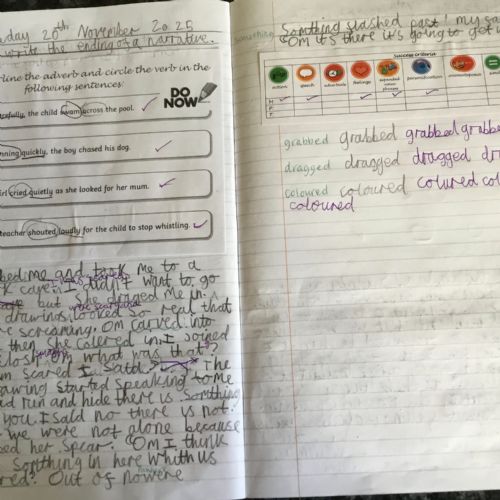 day 20th November 2025
write the ending of a narrative.
rline the adverb and circle the verb in the
following sentences:
DO
NOW
, the child swam across the pool.
nning quickly, the boy chased his dog.
irl cried quietly as she looked for her mum.
teacher shouted loudly for the child to stop whistling.
bed me and took me to a
k cave. I didn't want to go
but she draged me in.
drawings looked so real that
e screaming. Om carved into
then she calered in. I joined
Om what was that?
m scared I said. The
awing started speaking to me
ad run and hide there is Somthing
you. I said no there is not.
we were not alone because
bed her spear. Om I think
Somthing in here whith us
red? Out of nowere
something
Somthing slashed past my
Om it's there it's going to get
Success criteria:
action
speech
adverbials
feelings
expanded noun phrases
personification
onomatopoeia
grabbed grabbed grabbed grabbe
dragged dragged dragged dr
coloured coloured coloured col
coloured